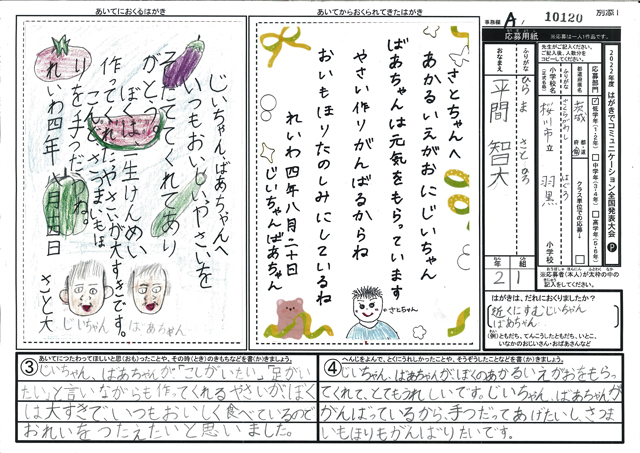 あいてにおくるはがき
じいちゃんばあちゃんへ
いつもおいしいやさいを
そだててくれてあり
がとう。
ぼくは、一生けんめい
作ってくれたやさいが大すきです。
こんど、さつまいもほ
りを手つだうね。
れいわ四年 八月十四日
さと大
じいちゃん
ばあちゃん
あいてからおくられてきたはがき
さとちゃんへ
あかるいえがおにじいちゃん
ばあちゃんは元気をもらっています
やさい作りがんばるからね
おいもほりたのしみにしているね
れいわ四年八月二十日
じいちゃんばあちゃん
さとちゃん
事務欄 A
10120
別添1
応募用紙
※応募は一人1作品です。
先生がご記入ください。
ご記入後、人数分を
コピーしてください。
2022年度 はがきでコミュニケーション全国発表大会 P
応募部門
低学年(1・2年)
中学年(3・4年)
高学年(5・6年)
都道府県名
茨城
都・道
府・県
クラス単位での応募
ふりがな
さくらがわし
はぐろ
小学校名
(正式名称)
桜川市立 羽黒
小学校
ふりがな
ひらま さとひろ
おなまえ
平間 智大
年 2
組 1
※応募者(本人)が太枠の中の
記入をしてください。
はがきは、だれにおくりましたか?
近くにすむじいちゃん
ばあちゃん
(例)ともだち、てんこうしたともだち、いとこ、
いなかのおじいさん・おばあさんなど
③
あいてにつたわってほしいと思(おも)ったことや、その時(とき)のきもちなどを書(か)きましょう。
じいちゃん、ばあちゃんが「こしがいたい」「足がい
たい」と言いながらも作ってくれるやさいがぼく
は大すきで、いつもおいしく食べているので
おれいをつたえたいと思いました。
④
へんじをよんで、とくにうれしかったことや、そうぞうしたことなどを書(か)きましょう。
じいちゃん、ばあちゃんがぼくのあかるいえがおをもらっ
てくれて、とてもうれしいです。じいちゃん、ばあちゃんが
がんばっているから、手つだってあげたいし、さつま
いもほりもがんばりたいです。